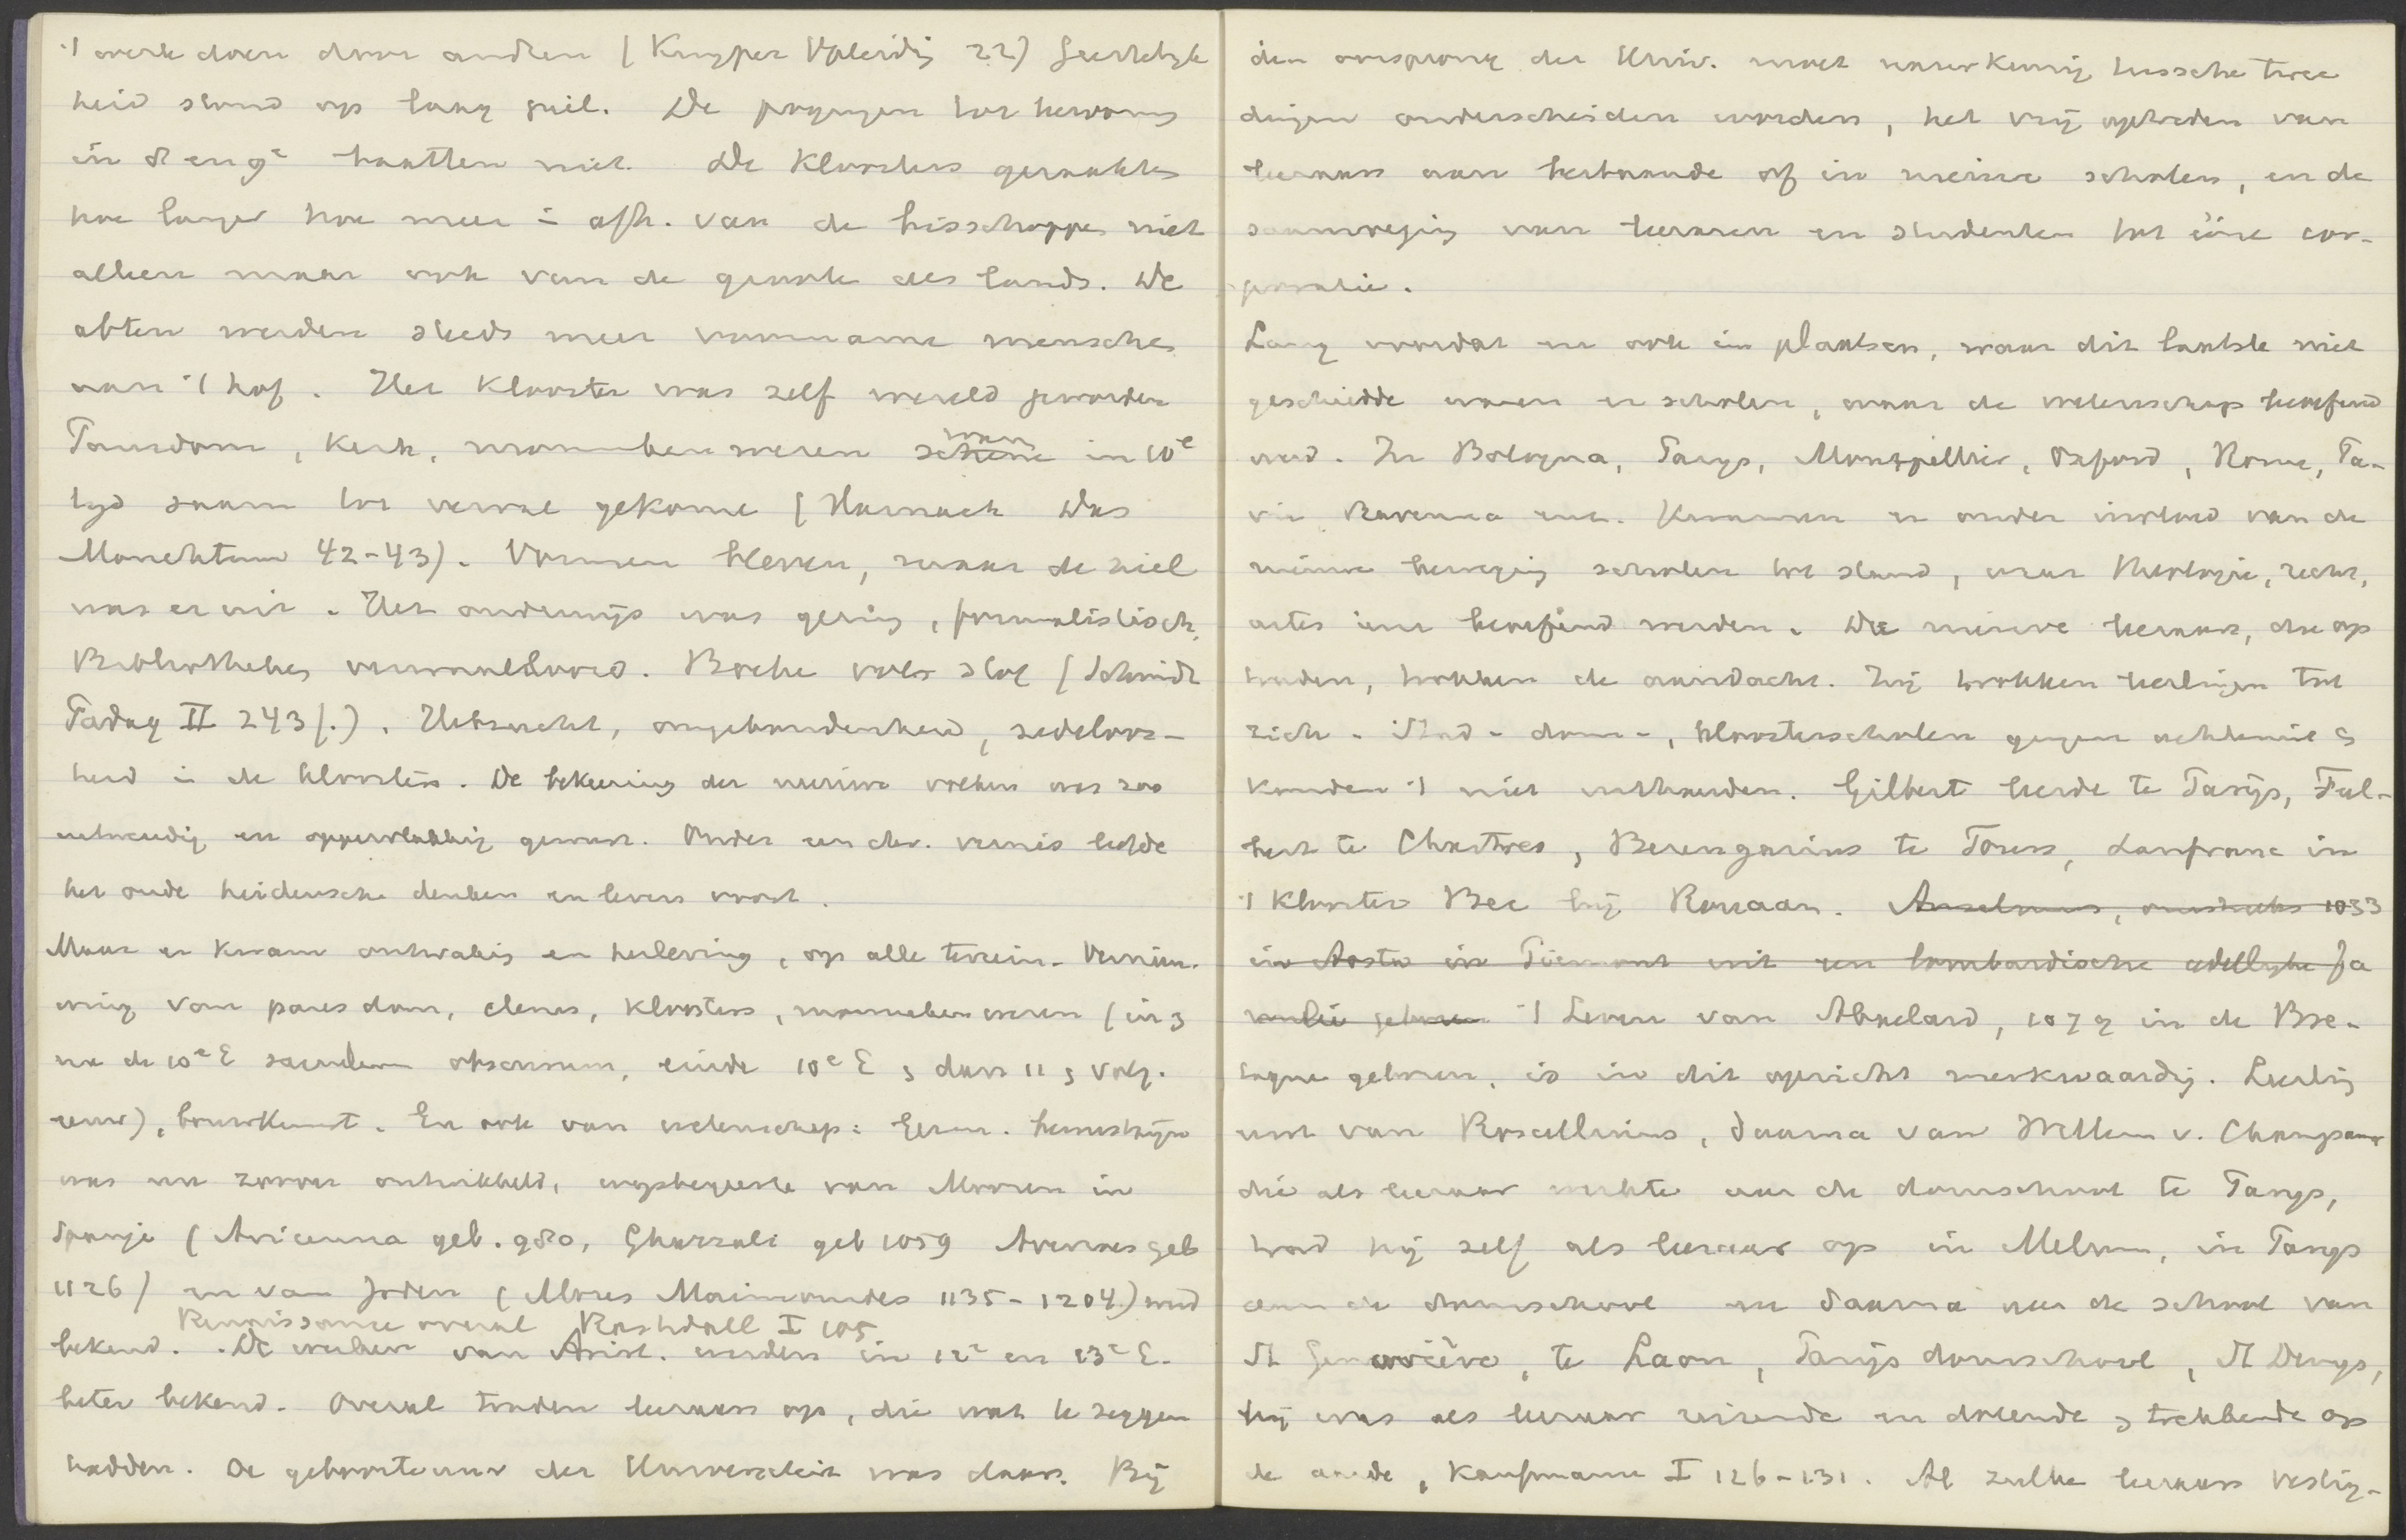 't werk doen door andren (Kuyper Opleidg 22) Geestelyk
heid stond op laag peil. De pogingen tot hervorming
in 8e en 9e baatten niet. De Kloosters geraakten
hoe langer hoe meer i afh. van de bisschoppen niet
alleen maar ook van de groote des lands. De
abten werden steeds meer voorname menschen
aan 't hof. Het Klooster was zelf wereld geworden
Pausdom, Kerk, monnikenwezen waren in 10e
tyd saam tot verval gekomen (Harnack Das
Monchtum 42-43). Vormen bleven, maar de ziel
was er uit. Het onderwijs was gering, formalistisch,
Bibliotheken verwaarloosd. Boeken vol stof (Schmidt
Padag II 243f.). Hebzucht, ongebondenheid, zedeloos-
heid i de kloosters. De bekeering der nieuwe volken was zoo
uitwendig en oppervlakkig geweest. Onder een chr. vernis leefde
het oude heidensche denken en leven voort.
Maar er kwam ontwaking en herleving, op alle terrein. Vernieu-
wing van pausdom, clerus, kloosters, monnikenwezen (in
na de 10e E saeculum obscurum, einde 10e E dan 11 volg.
eeuw), bouwkunst. En ook van wetenschap: Geneeskunde
was nu zoover ontwikkeld, wijsbegeerte van Mooren in
Spanje (Avicenna geb. 980, Ghazzali geb 1059 Averroes geb
1126) en van Joden (Mozes Maimonides 1135-1204) werd
Renaissance overal Rashdall I 105
bekend. De werken van Arist. werden in 12e en 13e E.
beter bekend. Overal traden leeraars op, die wat te zeggen
hadden. De geboorteuur der Universiteit was daar. Bij
den oorsprong der Univ. moet nauwkeurig tussche twee
dingen onderscheiden worden, het vrij optreden van
leeraars aan bestaande of in nieuwe scholen, en de
saamvoeging van leeraren en studenten tot ééne cor-
poratie.
Lang voordat en ook in plaatsen, waar dit laatste niet
geschiedde waren er scholen, waar de wetenschap beoefend
werd. In Bologna, Parys, Montpellier, Oxford, Rome, Pa-
via Ravenna enz. kwamen er onder invloed van de
nieuwe beweging scholen tot stand, waar theologie, recht,
artes enz beoefend werden. De nieuwe leeraars, die op
traden, trokken de aandacht. Zij trokken leerlingen tot
zich. Stad- dom-, kloosterscholen gingen achteruit
konden 't niet uithouden. Gilbert leerde te Parijs, Ful-
bert te Chartres, Berengarius te Tours, Lanfranc in
't Klooster Bec bij Rouaan. Anselmus, omstreeks 1033
in Aosta in Piemont uit een lombardische adellyke fa
milie geboren 't Leven van Abaelard, 1079 in de Bre-
tagne geboren, is in dit opzicht merkwaardig. Leerling
eerst van Roscellinus, daarna van Willem v. Champeaux
die als leeraar werkte aan de domschool te Parys,
trad hij zelf als leeraar op in Melun, in Parys
aan de domschool en daarna aan de school van
St Geneviève, te Laon, Parijs domschool, St Denys,
hij was als leeraar reizende en dolende trekkende op
de aarde, Kaufmann I 126-131. Al zulke leeraars vestig-